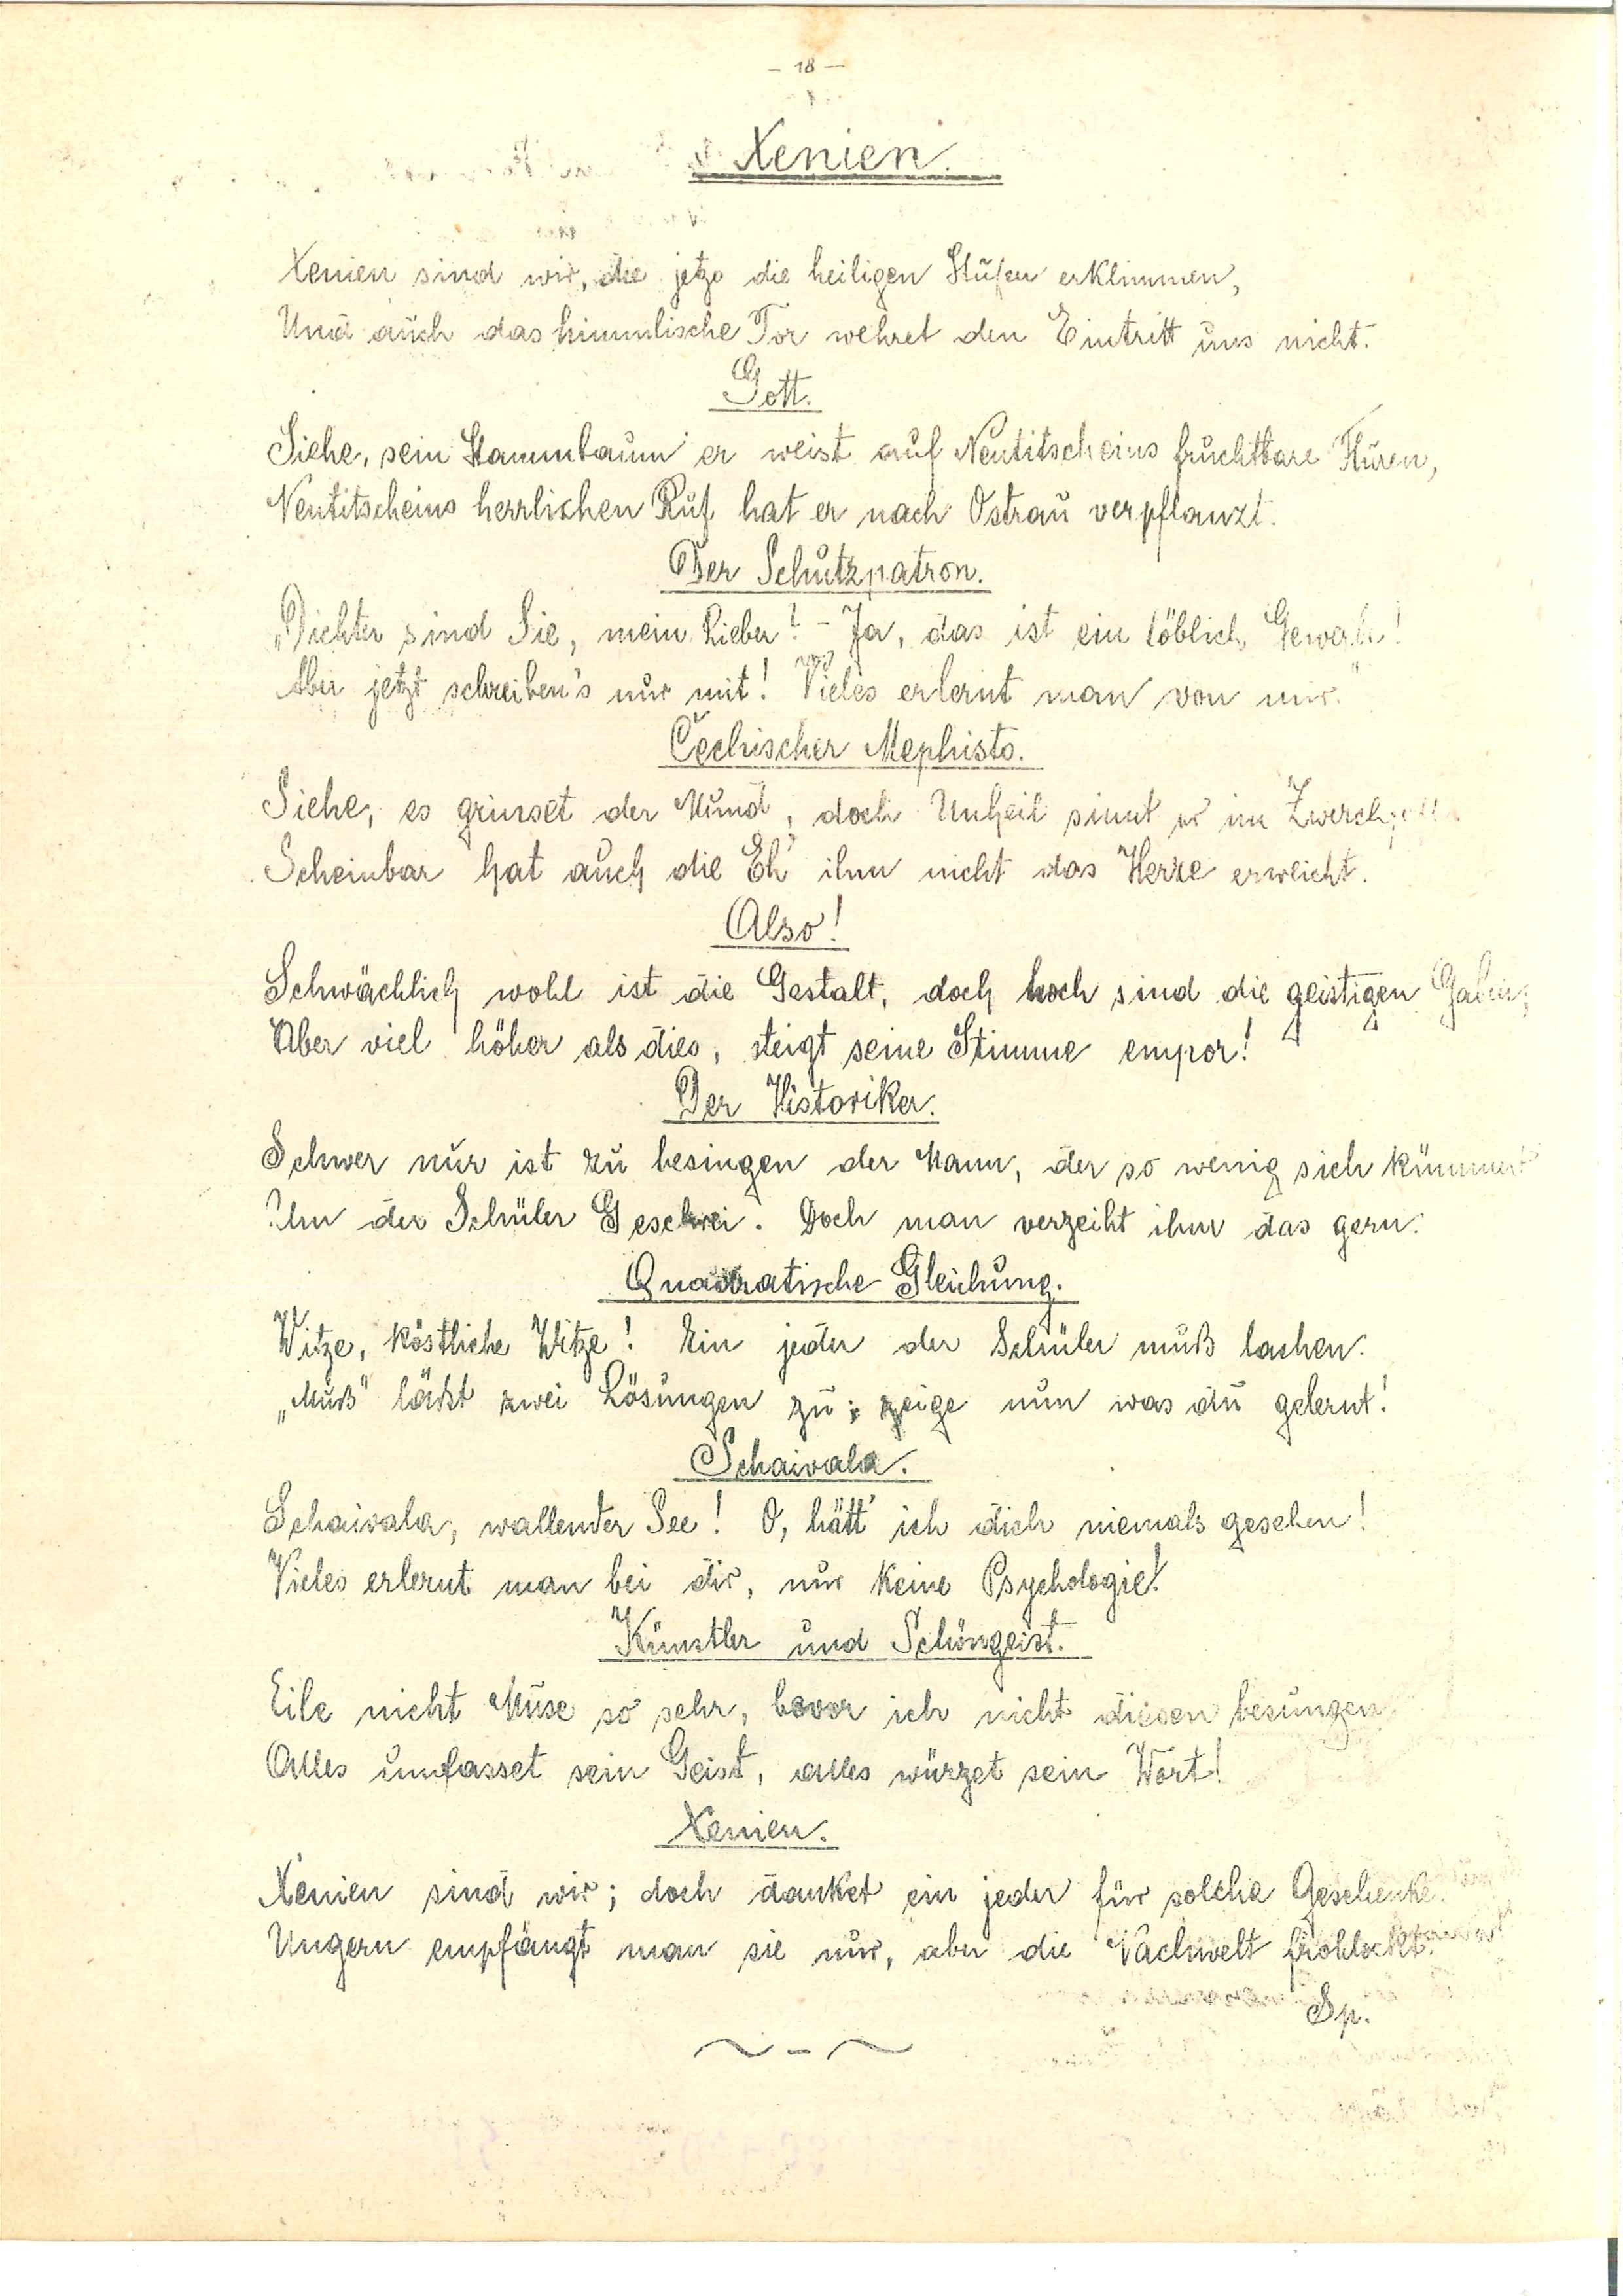 - 18 -
Xenien.
Xenien sind wir, die jetzo die heiligen Stufen erklimmen,
Und auch das himmlische Tor wehret den Eintritt uns nicht.
Gott.
Siehe, sein Stammbaum er weist auf Neutitscheins fruchtbare Fluren,
Neutitscheins herrlichen Ruf hat er nach Ostrau verpflanzt.
Der Schutzpatron.
„Dichter sind Sie, mein Lieber? - Ja, das ist ein löblich Gewerb!
Aber jetzt schreiben's nur mit! Vieles erlernt man von mir."
Čechischer Mephisto.
Siehe, es grinset der Mund, doch Unheil sinnt er im
Scheinbar hat auch die Eh' ihm nicht das Herze erweicht.
Also!
Schwächlich wohl ist die Gestalt, doch hoch sind die geistigen Gaben;
Aber viel höher als dies, steigt seine Stimme empor!
Der Historiker.
Schwer nur ist zu besingen der Mann, der so wenig sich kümmert
Um der Schüler Geschrei. Doch man verzeiht ihm das gern.
Quadratische Gleichung.
Witze, köstliche Witze! Ein jeder der Schüler muß lachen.
„Muß" läßt zwei Lösungen zu; zeige nun was du gelernt!
Schaivala.
Schaivala, wallender See! O, hätt' ich dich niemals gesehen!
Vieles erlernt man bei dir, nur keine Psychologie!
Künstler und Schöngeist.
Eile nicht Muse so sehr, bevor ich nicht diesen besungen
Alles umfasset sein Geist, alles würzet sein Wort!
Xenien.
Xenien sind wir; doch danket ein jeder für solche Geschenke.
Ungern empfängt man sie nur, aber die Nachwelt frohlockt.
Sp.